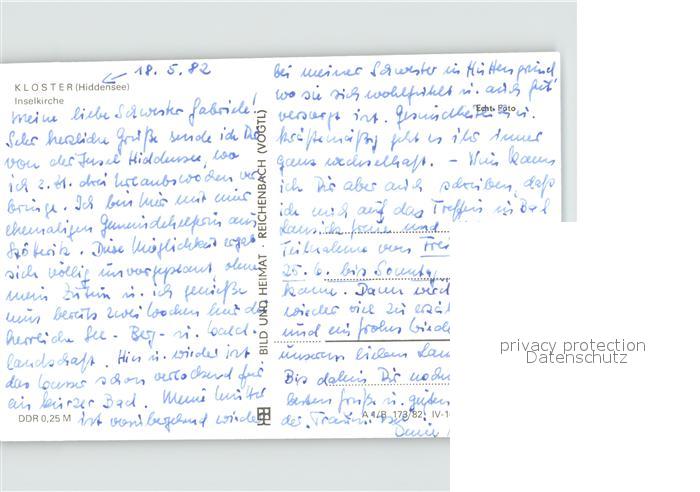 18.5.82
KLOSTER (Hiddensee)
Inselkirche
Meine liebe Schwester Gabriele!
Sehr herzliche Grüße sende ich Dir
von der Insel Hiddensee, wo
ich z. Zt. drei Urlaubswochen ver-
bringe. Ich bin hier mit einer
ehemaligen Gemeindehelferin aus
Diese Möglichkeit ergab
sich völlig ungeplant ohne
mein Zutun u. ich genieße
nun bereits zwei Wochen hier die
herrliche See- Berg- u. Wald-
landschaft. Hin u. wieder ist
das Wasser schon verlockend für
ein kurzes Bad. Meine Mutter
ist vorübergehend wieder
DDR 0,25 M
BILD UND HEIMAT REICHENBACH (VOGTL)
bei meiner Schwester in Hüttengrund
wo sie sich wohlfühlt u. auch gut
versorgt ist. Gesundheitlich u.
Echt Foto
kräftemäßig geht es ihr immer
ganz wechselhaft. – Nun kann
ich Dir aber auch schreiben, daß
ich mich auf das Treffen in Bad
Lausick freue und
Teilnahme vom Frei
25.6. bis Sonntag
kann. Dann wird
wieder viel zu erzäh
und ein frohes Wieder
unserem lieben
Bis dahin Dir noch
besten Grüße u. guten
der
A 1/B 173/82 IV-1
Deine
privacy protection
Datenschutz